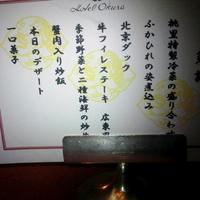 Hotel Okura
桃里特製冷菜の盛り合わ
ふかひれの姿煮込み
北京ダック
牛フィレステーキ 広東
季節野菜と二種海鮮の炒
蟹肉入り炒飯
本日のデザート
一口菓子